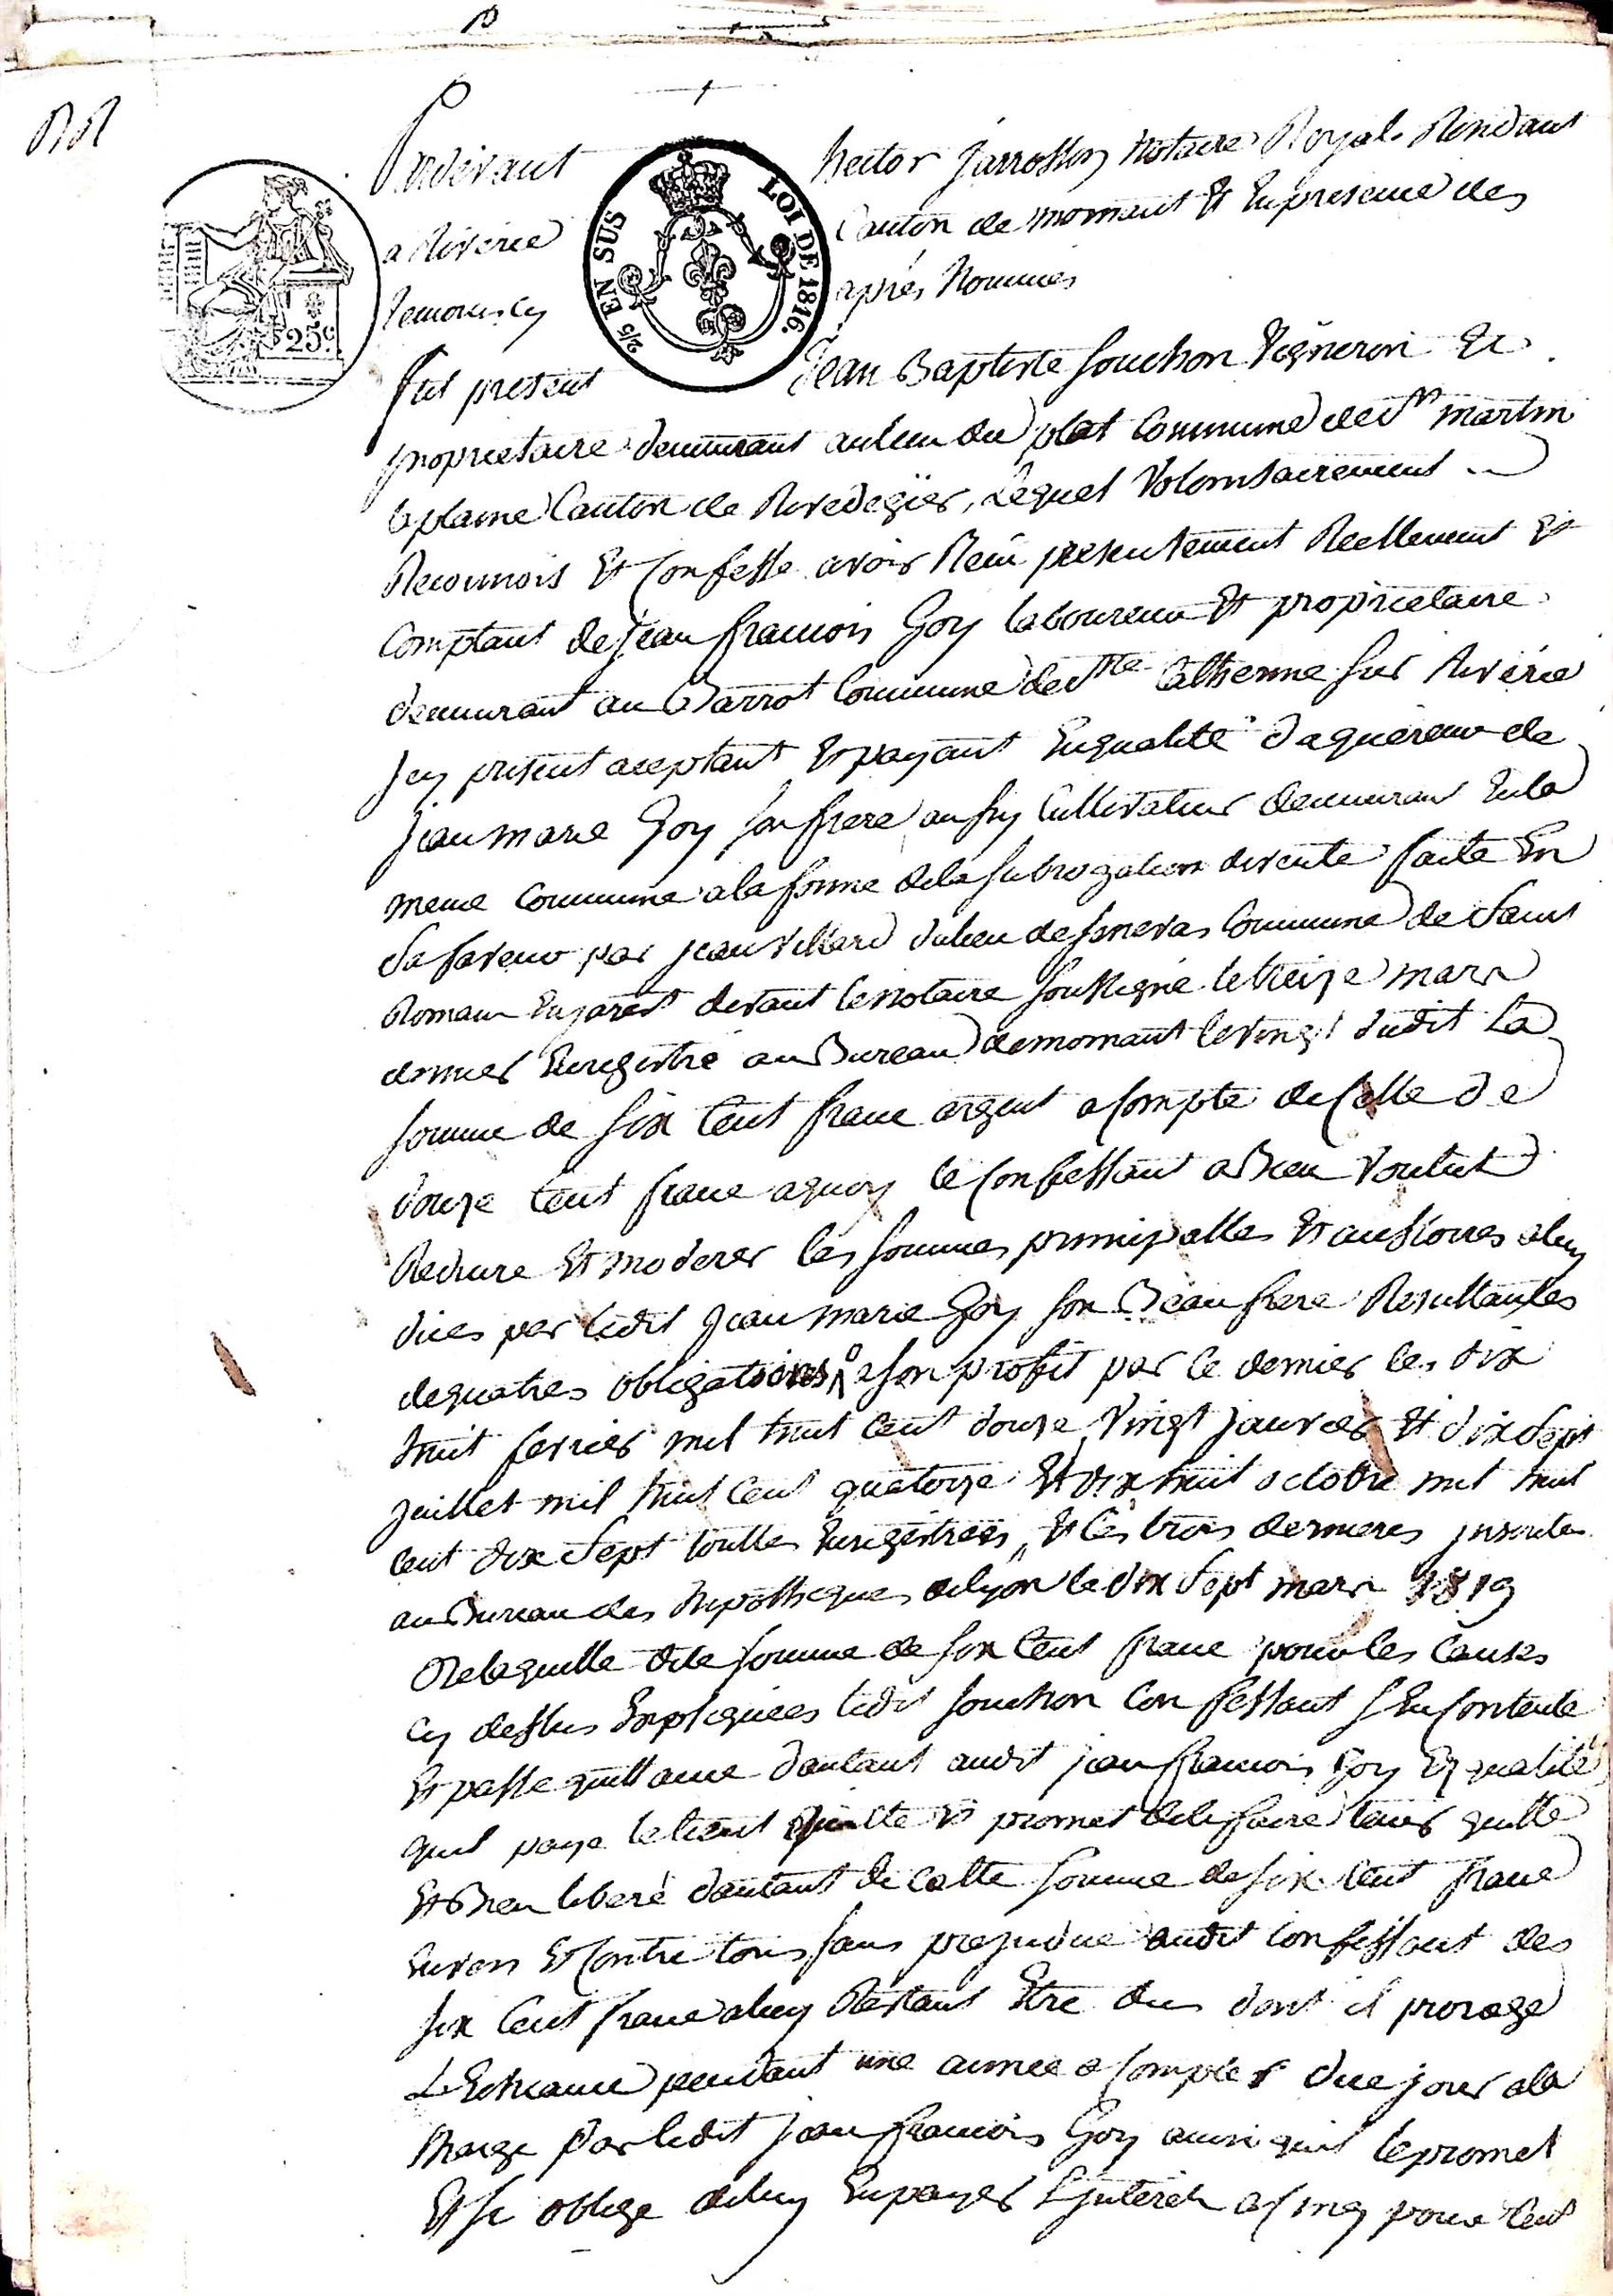 Pardevant hector jarrosson Notaire Royal Residant
a Riverie Canton de mornant Et En presence des
temoins cy après Nommés
fut présent Jean Baptiste souchon Vigneron Et
propriétaire demeurant au lieu du plat Commune de St martin
la plaine Canton de Rivedegier, Lequel Volontairement
Reconnois Et Confesse avoir Reçu presentement Reellement Et
Comptant de jean francois Goy laboureur Et proprietaire
demeurant au Barrot Commune de Ste Catherine sur Riverie
Icy present aceptant Et payant En qualité d'aquereur de
jean marie Goy son frere aussy Cultivateur demeurant En la
meme Commune a la forme de la subrogation de vente faite En
sa faveur par jean villard du lieu de Commune de saint
Romain En jarest devant le notaire soussigné le treize mars
dernier Enregistré au Bureau de mornant le vingt dudit La
somme de six Cent franc argent a Compte de Celle de
douze Cent franc a quoy le Confessant a Bien Voulut
Reduire Et moderer les sommes principalles Et a luy
dues par ledit jean marie Goy son Beau frere Resultantes
de quatres obligations a son profit par ce dernier les dix
huit fevrier mil huit Cent douze, Vingt janvier Et dix sept
juillet mil huit Cent quatorze Et dix huit octobre mil huit
Cent dix sept toutte Enregistrées, Et les trois dernieres
au Bureau des hipotheques de lyon le dix sept mars 1819
De laquelle dite somme de six Cent franc pour les Causes
Cy dessus Expliquées ledit souchon Confessant s'En Contente
Et passe quittance d'autant audit jean francois Goy En qualité
quil paye le tient quitte Et promet de le faire tenir quitte
Et Bien liberé d'autant de Cette somme de six Cent franc
Envers Et Contre tous sans prejudice audit Confessant des
six Cent franc a luy Restant Etre dus dont il proroge
L'Echeance pendant une année a Compter de ce jour a la
Charge par ledit jean francois Goy ainsi quil le promet
Et se oblige de luy En payer L'jnterêt a Cinq pour Cent
25c.
2/5 EN SUS
LOI DE 1816.